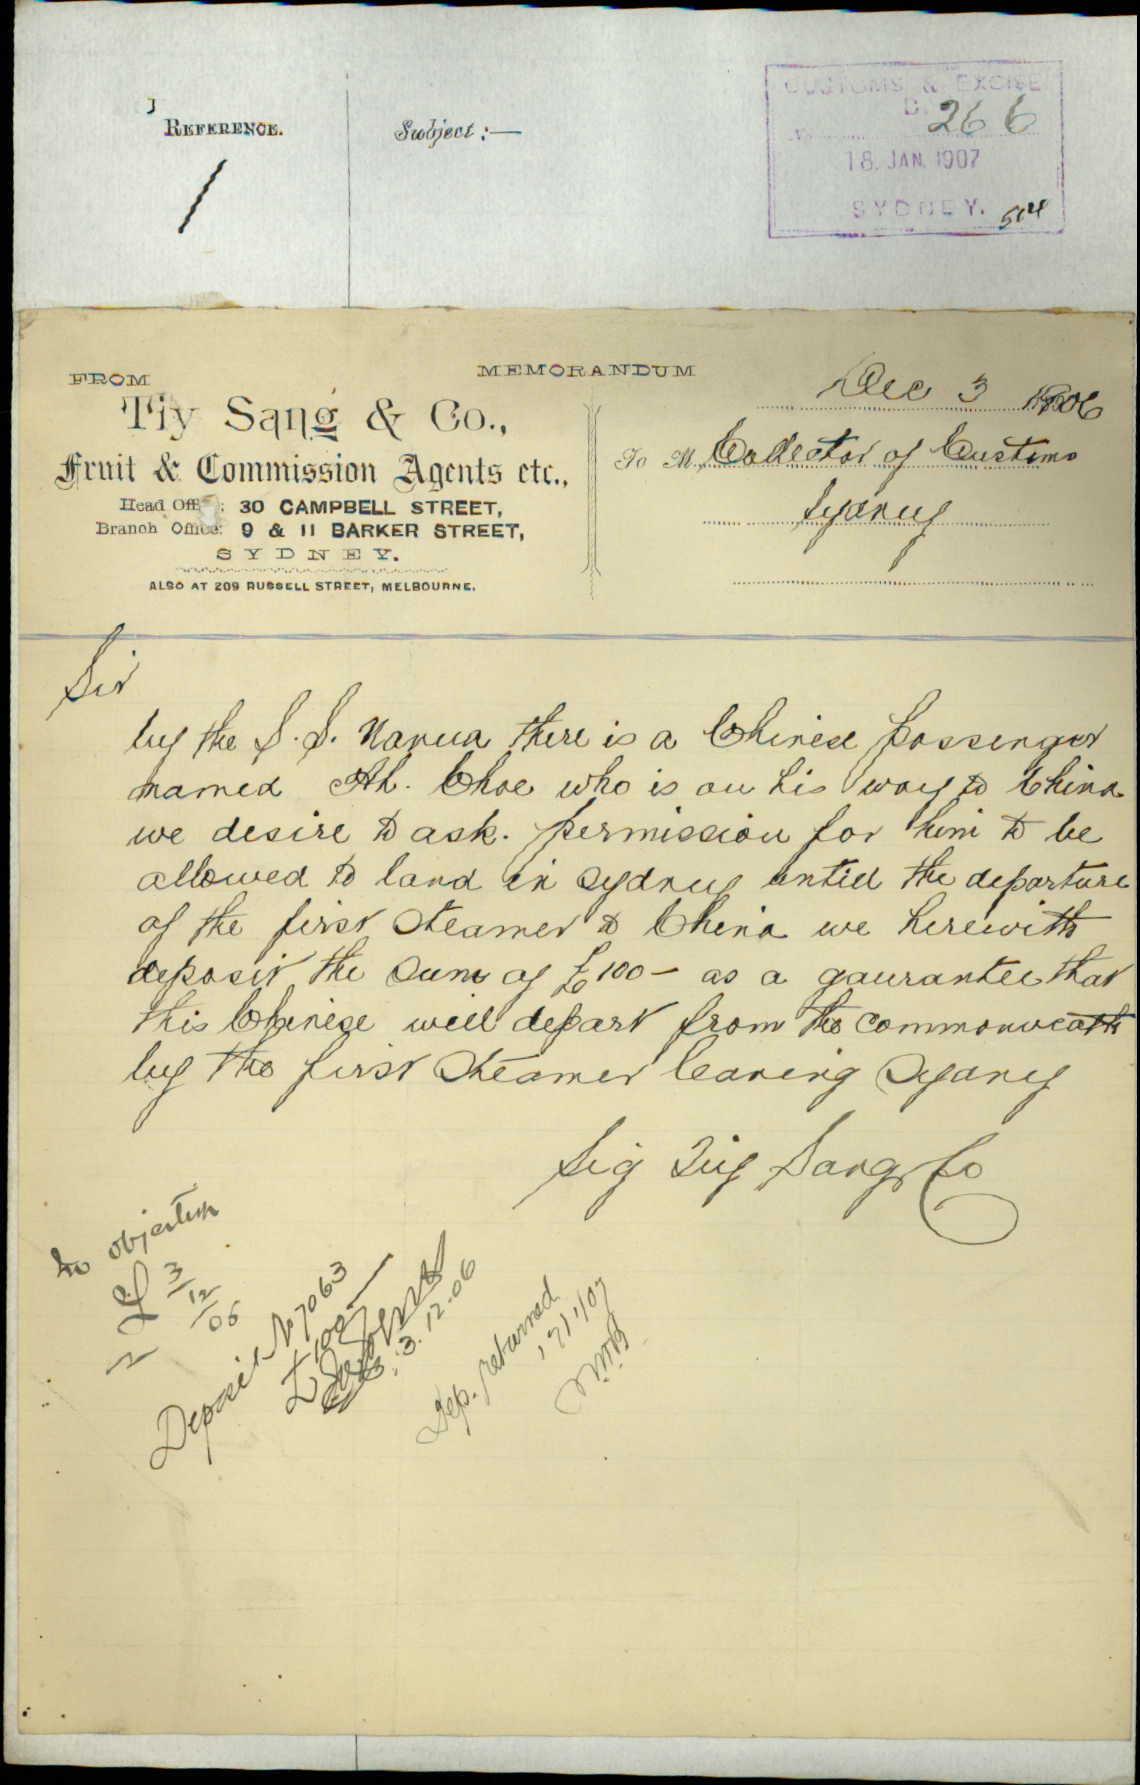 REFERENCE.
Subject:—
CUSTOMS & EXCISE
266
18. JAN. 1907
SYDNEY.
FROM
MEMORANDUM
Tiy Sang & Co.,
Fruit & Commission Agents etc.,
Head Office: 30 CAMPBELL STREET,
Branch Office: 9 & 11 BARKER STREET,
SYDNEY.
ALSO AT 209 RUSSELL STREET, MELBOURNE.
Dec 3 1906
To M Collector of Customs
Sydney
Sir
by the S.S. Manuka there is a Chinese passenger
named Ah. Choe who is on his way to China
we desire to ask. permission for him to be
allowed to land in Sydney untill the departure
of the first Steamer to China we herewith
deposit the Sum of £100 – as a gaurantee that
this Chinese will depart from the Commonweath
by the first Steamer leaving Sydney
Sig Tiy Sang & Co
No objection
3/12/06
Deposit No 7063
£100
3.12.06
Dep. returned
17/1/07